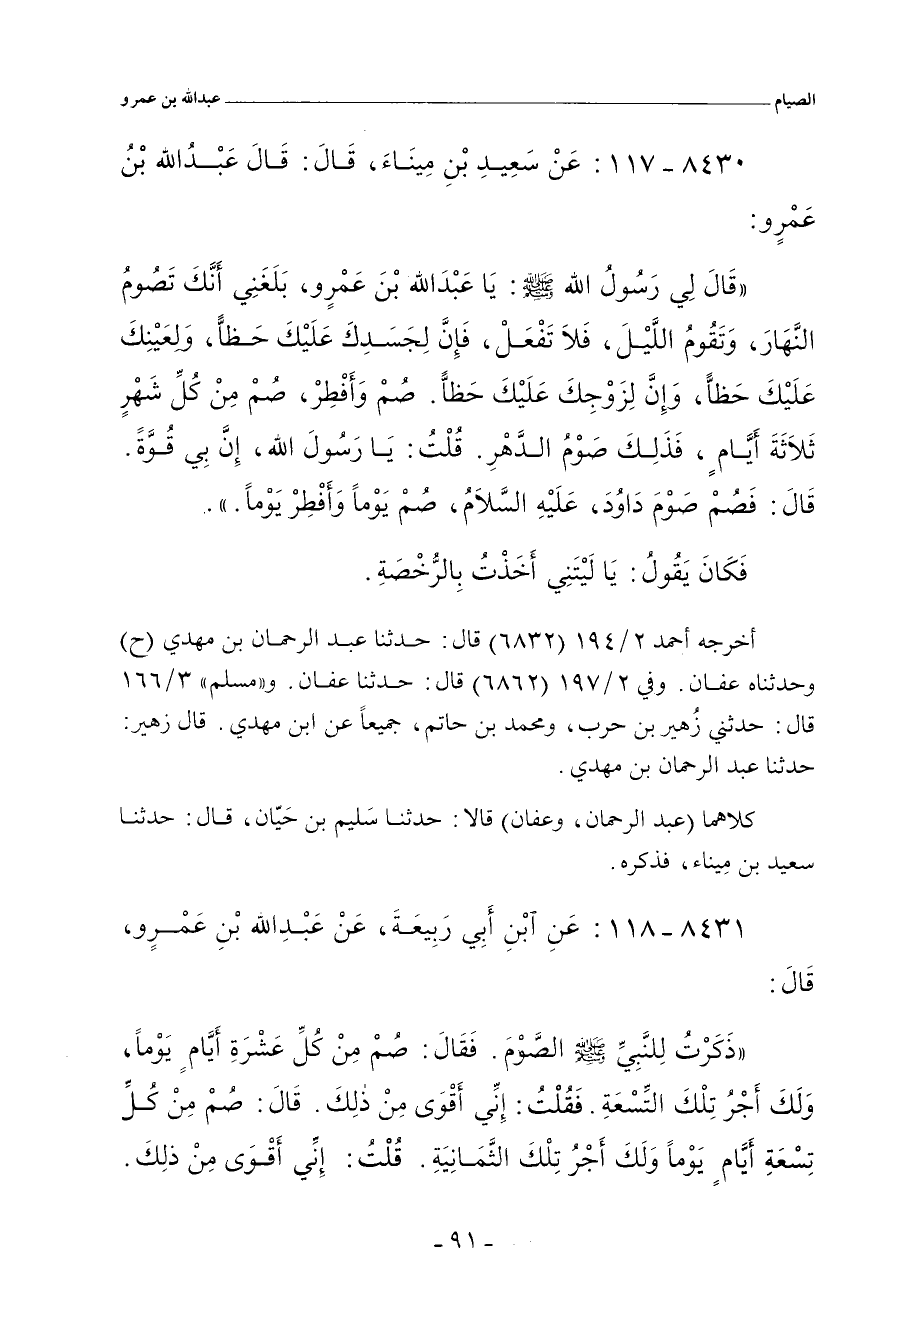 الصيام ــــــــــــــــــــ عبدالله بن عمرو
٨٤٣٠ ـ ١١٧ : عَنْ سَعِيدِ بْنِ مِينَاءَ، قَالَ : قَالَ عَبْدُالله بْنُ
عَمْرٍو :
«قَالَ لِي رَسُولُ الله ﷺ : يَا عَبْدَالله بْنَ عَمْرٍو، بَلَغَنِي أَنَّكَ تَصُومُ
النَّهَارَ، وَتَقُومُ اللَّيْلَ، فَلاَ تَفْعَلْ، فَإِنَّ لِجَسَدِكَ عَلَيْكَ حَظاًّ، وَلِعَيْنِكَ
عَلَيْكَ حَظاًّ، وَإِنَّ لِزَوْجِكَ عَلَيْكَ حَظاًّ. صُمْ وَأَفْطِرْ، صُمْ مِنْ كُلِّ شَهْرٍ
ثَلاَثَةَ أَيَّامٍ، فَذَلِكَ صَوْمُ الدَّهْرِ. قُلْتُ : يَا رَسُولَ الله، إِنَّ بِي قُوَّةً.
قَالَ : فَصُمْ صَوْمَ دَاوُدَ، عَلَيْهِ السَّلاَمُ، صُمْ يَوْماً وَأَفْطِرْ يَوْماً.».
فَكَانَ يَقُولُ : يَا لَيْتَنِي أَخَذْتُ بِالرُّخْصَةِ.
أخرجه أحمد ٢/ ١٩٤ (٦٨٣٢) قال : حدثنا عبد الرحمان بن مهدي (ح)
وحدثناه عفان. وفي ٢/ ١٩٧ (٦٨٦٢) قال : حدثنا عفان. و«مسلم» ٣/ ١٦٦
قال : حدثني زُهير بن حرب، ومحمد بن حاتم، جميعاً عن ابن مهدي. قال زهير :
حدثنا عبد الرحمان بن مهدي.
كلاهما (عبد الرحمان، وعفان) قالا : حدثنا سَليم بن حَيّان، قال : حدثنا
سعيد بن مِيناء، فذكره.
٨٤٣١ ـ ١١٨ : عَنِ ٱبْنِ أَبِي رَبِيعَةَ، عَنْ عَبْدِالله بْنِ عَمْرٍو،
قَالَ :
«ذَكَرْتُ لِلنَّبِيِّ ﷺ الصَّوْمَ. فَقَالَ : صُمْ مِنْ كُلِّ عَشْرَةِ أَيَّامٍ يَوْماً،
وَلَكَ أَجْرُ تِلْكَ التِّسْعَةِ. فَقُلْتُ : إِنِّي أَقْوَى مِنْ ذٰلِكَ. قَالَ : صُمْ مِنْ كُلِّ
تِسْعَةِ أَيَّامٍ يَوْماً وَلَكَ أَجْرُ تِلْكَ الثَّمَانِيَةِ. قُلْتُ : إِنِّي أَقْوَى مِنْ ذلِكَ.
ـ ٩١ ـ